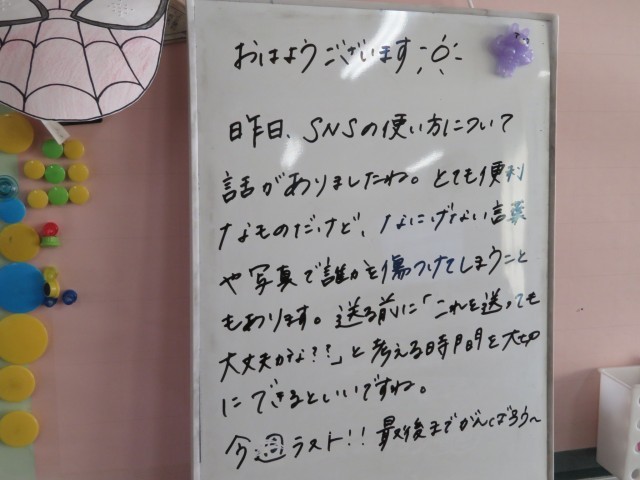 おはようございます
昨日、SNSの使い方について
話がありましたね。とても便利
なものだけど、なにげない言葉
や写真で誰かを傷つけてしまうこと
もあります。送る前に「これを送っても
大丈夫かな??」と考える時間を大切
にできるといいですね。
今週ラスト!!最後までがんばろう〜